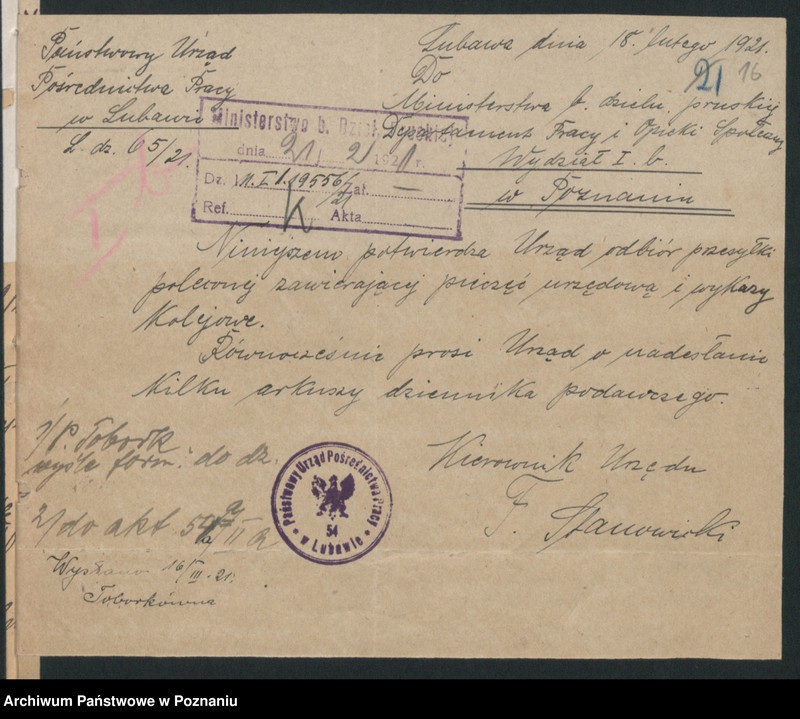 Państwowy Urząd
Pośrednictwa Pracy
w Lubawie
L. dz. 65/21.
Lubawa dnia 18. lutego 1921.
21 16
Do
Ministerstwa b. dzieln. pruskiej
Departament Pracy i Opieki Społecznej
Wydział I. b.
w Poznaniu
Ministerstwo b. Dziel. Pruskiej
dnia 21/2 1921 r.
Dz. I.19556/21 zał. —
Ref. K Akta
I b
Niniejszem potwierdza Urząd odbiór przesyłki
poleconej zawierającej pieczęć urzędową i wykazy
kolejowe.
Równocześnie prosi Urząd o nadesłanie
kilku arkuszy dziennika podawczego.
Kierownik Urzędu
F. Stanowicki
1/ P. Tobork
wyśle form. do dz.
2/ do akt
Wysłano 16/III. 21.
Toborkówna
Państwowy Urząd Pośrednictwa Pracy
54
* w Lubawie *
Archiwum Państwowe w Poznaniu